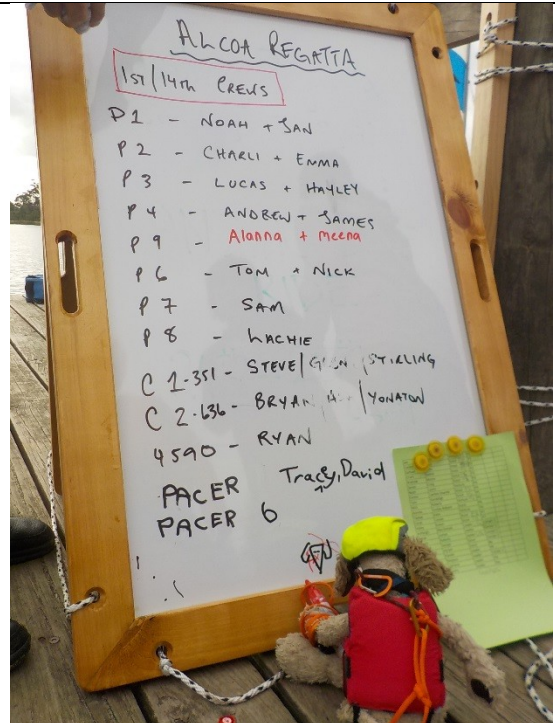 ALCOA REGATTA
1ST/14TH CREWS
P1 - NOAH + IAN
P2 - CHARLI + EMMA
P3 - LUCAS + HAYLEY
P4 - ANDREW + JAMES
P9 - Alanna + Meena
P6 - TOM + NICK
P7 - SAM
P8 - LACHIE
C 1.351 - STEVE/ STIRLING
C 2.636 - BRYAN /YONATON
4590 - RYAN
PACER Tracy, David
PACER 6